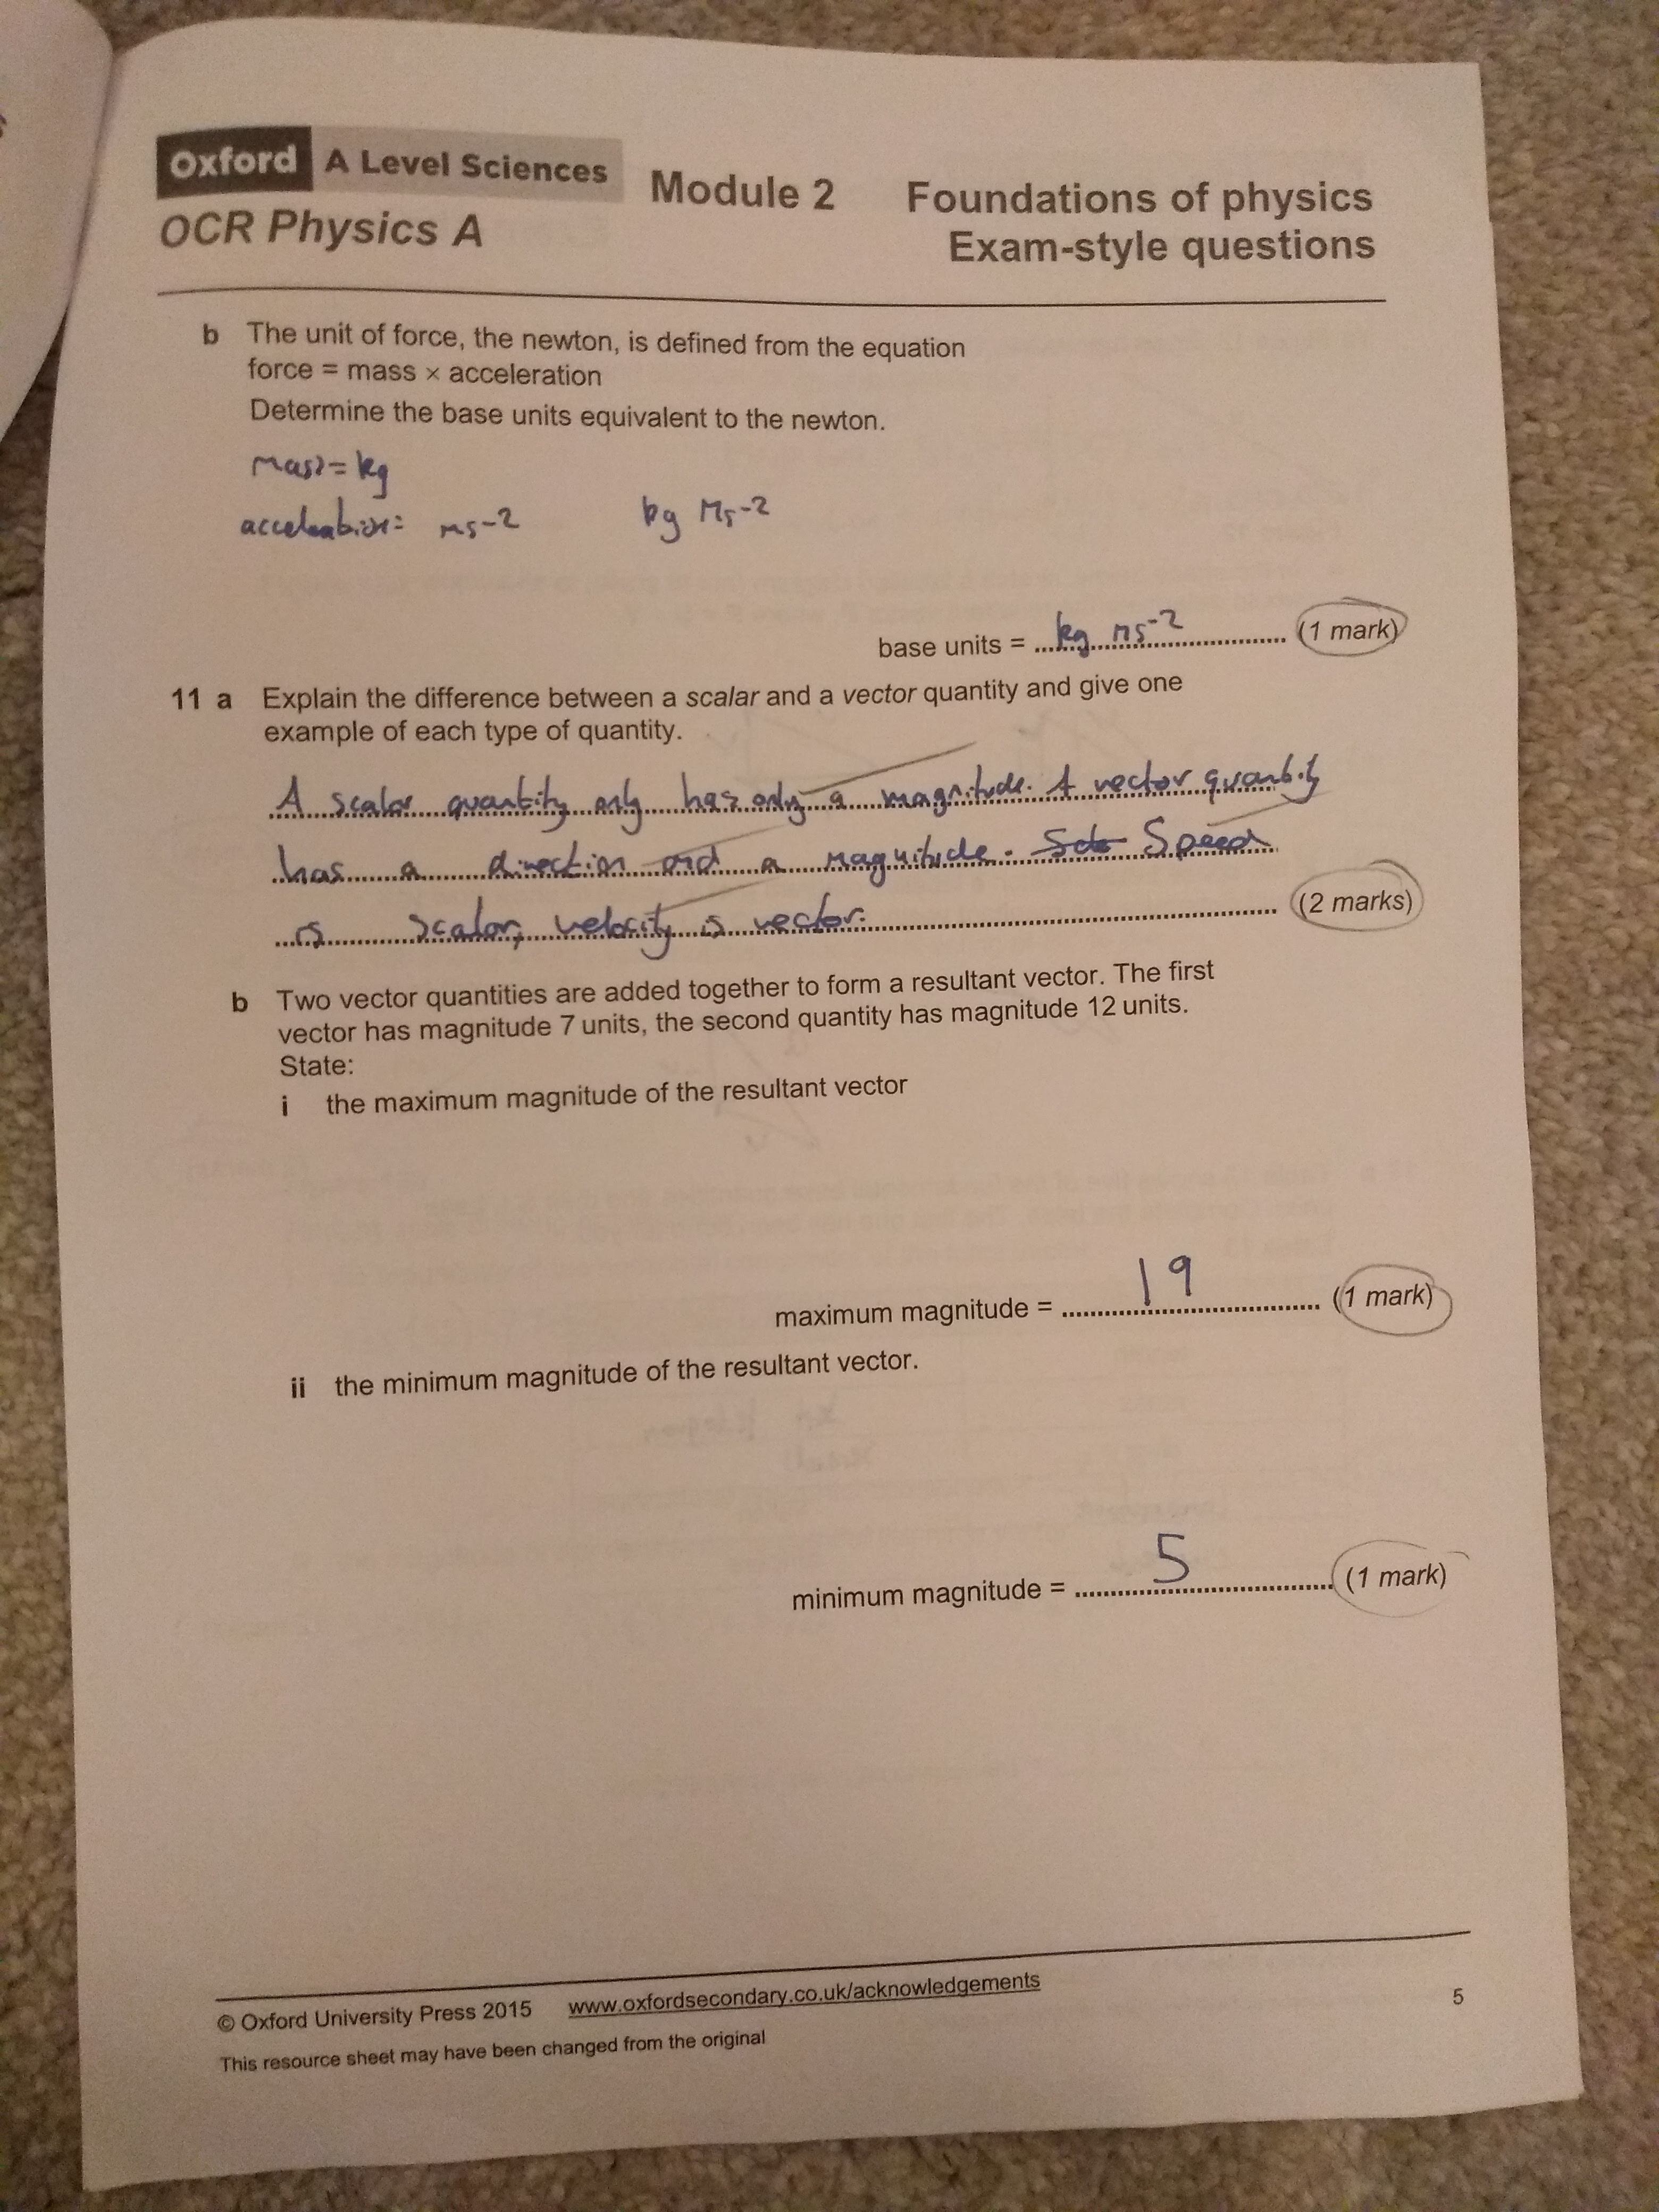 Oxford A Level Sciences
OCR Physics A
Module 2
Foundations of physics
Exam-style questions
b The unit of force, the newton, is defined from the equation
force = mass × acceleration
Determine the base units equivalent to the newton.
mass = kg
acceleration = ms-2 kg ms-2
base units = kg ms-2 (1 mark)
11 a Explain the difference between a scalar and a vector quantity and give one
example of each type of quantity.
A scalar quantity only has only a magnitude. A vector quantity
has a direction and a magnitude. Speed
is scalar, velocity is vector.
(2 marks)
b Two vector quantities are added together to form a resultant vector. The first
vector has magnitude 7 units, the second quantity has magnitude 12 units.
State:
i the maximum magnitude of the resultant vector
maximum magnitude = 19 (1 mark)
ii the minimum magnitude of the resultant vector.
minimum magnitude = 5 (1 mark)
© Oxford University Press 2015 www.oxfordsecondary.co.uk/acknowledgements
This resource sheet may have been changed from the original
5